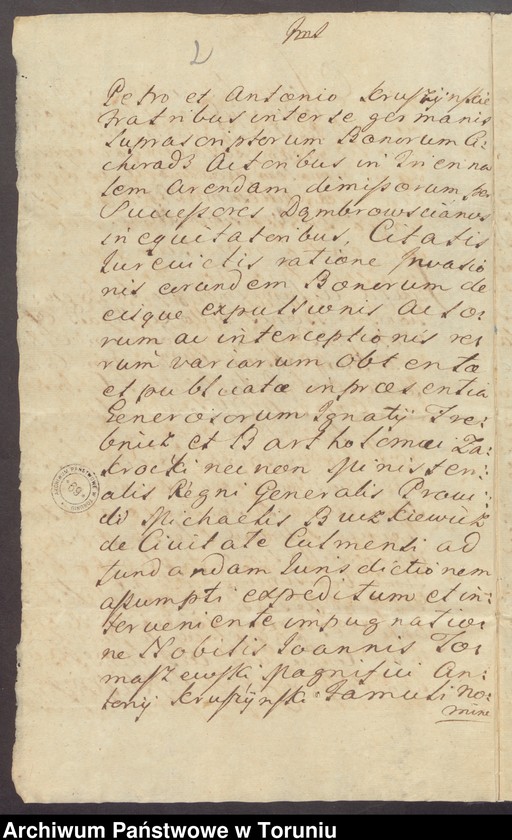 2
Petro et Antonio Kruszÿnskie
Fratribus inter se germanis
Suprascriptorum Bonorum Ci-
choradz Actoribus in Trienna
lem arendam dimissorum per
Successores Dąmbrowscianos
inequitatoribus, Citatis
Iurevictis ratione Invasio
nis eorundem Bonorum de
eisque expulsionis Acto:
rum ac interceptionis re:
rum variarum Obtentæ
et publicatæ in præsentia
Generosorum Ignatÿ Tre:
et Bartholomæi Za:
krocki nec non Ministeri:
alis Regni Generalis Provi:
di Michaelis Buczkiewicz
de Civitate Culmensi ad
fundandam Iurisdictionem
assumpti expeditum et in:
terveniente impugnatio:
ne Nobilis Ioannis To:
maszewski Magnifici An:
tonÿ Kruszÿnski Famuli no:
mine
ARCHIWUM PAŃSTWOWE W TORUNIU
69
Archiwum Państwowe w Toruniu